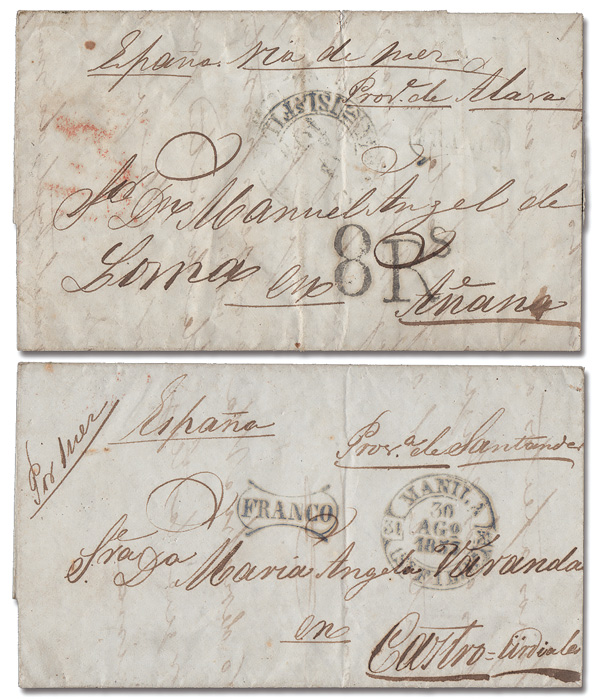 España. Via de mer
Prov.ª de Alava
ISLAS FIL
Sr. Dn. Manuel Angel de
Loma en
8 Rs
Añana
Por mer
España
Prov.ª de Santander
FRANCO
MANILA
30
AGO
31
Sra. Da. Maria Angel Varanda
en
Castro-Urdiales